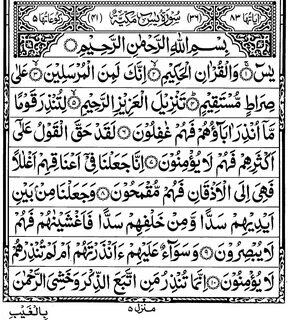 اٰیَاتُهَا ۸۳ (۳۶) سُوْرَةُ يٰسٓ مَكِّيَّةٌ (۴۱) رُكُوْعَاتُهَا ۵
بِسْمِ اللّٰهِ الرَّحْمٰنِ الرَّحِيْمِ
يٰسٓ ۝ وَالْقُرْاٰنِ الْحَكِيْمِ ۝ اِنَّكَ لَمِنَ الْمُرْسَلِيْنَ ۝ عَلٰى
صِرَاطٍ مُّسْتَقِيْمٍ ۝ تَنْزِيْلَ الْعَزِيْزِ الرَّحِيْمِ ۝ لِتُنْذِرَ قَوْمًا
مَّآ اُنْذِرَ اٰبَآؤُهُمْ فَهُمْ غٰفِلُوْنَ ۝ لَقَدْ حَقَّ الْقَوْلُ عَلٰٓى
اَكْثَرِهِمْ فَهُمْ لَا يُؤْمِنُوْنَ ۝ اِنَّا جَعَلْنَا فِيْٓ اَعْنَاقِهِمْ اَغْلٰلًا
فَهِيَ اِلَى الْاَذْقَانِ فَهُمْ مُّقْمَحُوْنَ ۝۸ وَجَعَلْنَا مِنْۢ بَيْنِ
اَيْدِيْهِمْ سَدًّا وَّمِنْ خَلْفِهِمْ سَدًّا فَاَغْشَيْنٰهُمْ فَهُمْ
لَا يُبْصِرُوْنَ ۝۹ وَسَوَآءٌ عَلَيْهِمْ ءَاَنْذَرْتَهُمْ اَمْ لَمْ تُنْذِرْهُمْ
لَا يُؤْمِنُوْنَ ۝۱۰ اِنَّمَا تُنْذِرُ مَنِ اتَّبَعَ الذِّكْرَ وَخَشِيَ الرَّحْمٰنَ
منزل ۵
بِالْغَيْبِ